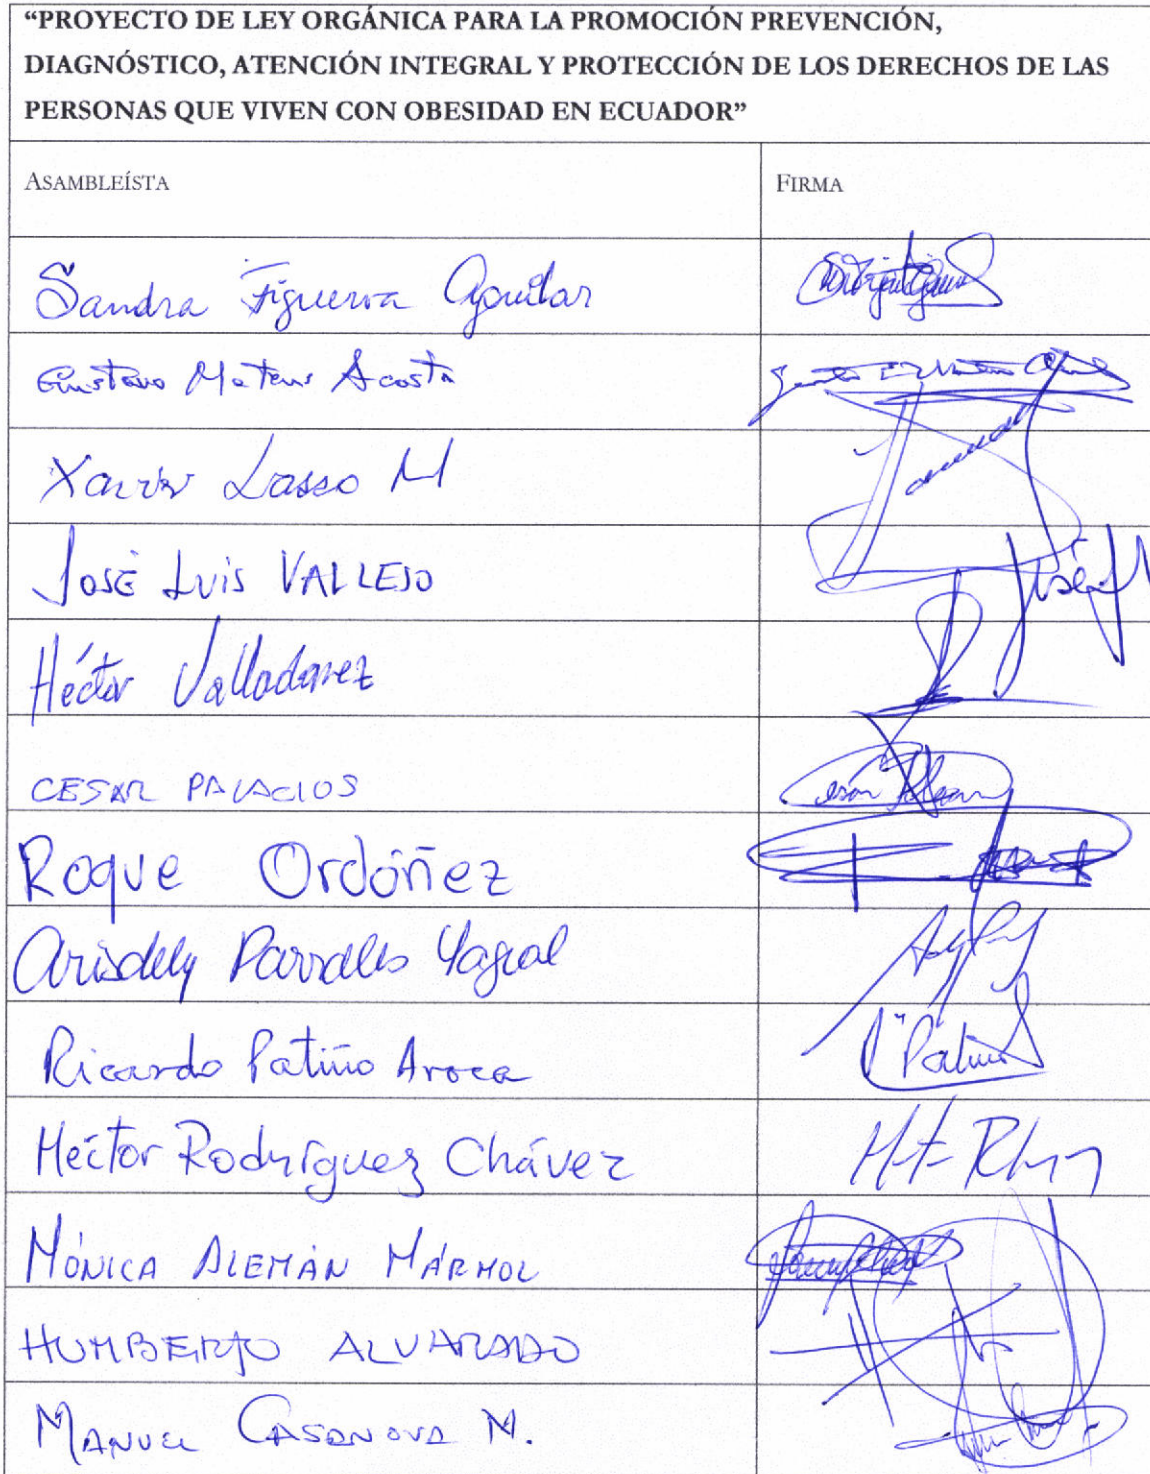 “PROYECTO DE LEY ORGÁNICA PARA LA PROMOCIÓN PREVENCIÓN,
DIAGNÓSTICO, ATENCIÓN INTEGRAL Y PROTECCIÓN DE LOS DERECHOS DE LAS
PERSONAS QUE VIVEN CON OBESIDAD EN ECUADOR”
ASAMBLEÍSTA FIRMA
Sandra Figueroa Aguilar
Gustavo Mateus Acosta
Xavier Lasso M
JOSÉ LUIS VALLEJO José
Héctor Valladarez
CESAR PALACIOS
Roque Ordóñez
Arisdely Parrales Yagual
Ricardo Patiño Aroca Patiño
Héctor Rodríguez Chávez
MÓNICA ALEMÁN MÁRMOL
HUMBERTO ALVARADO
MANUEL CASANOVA N.